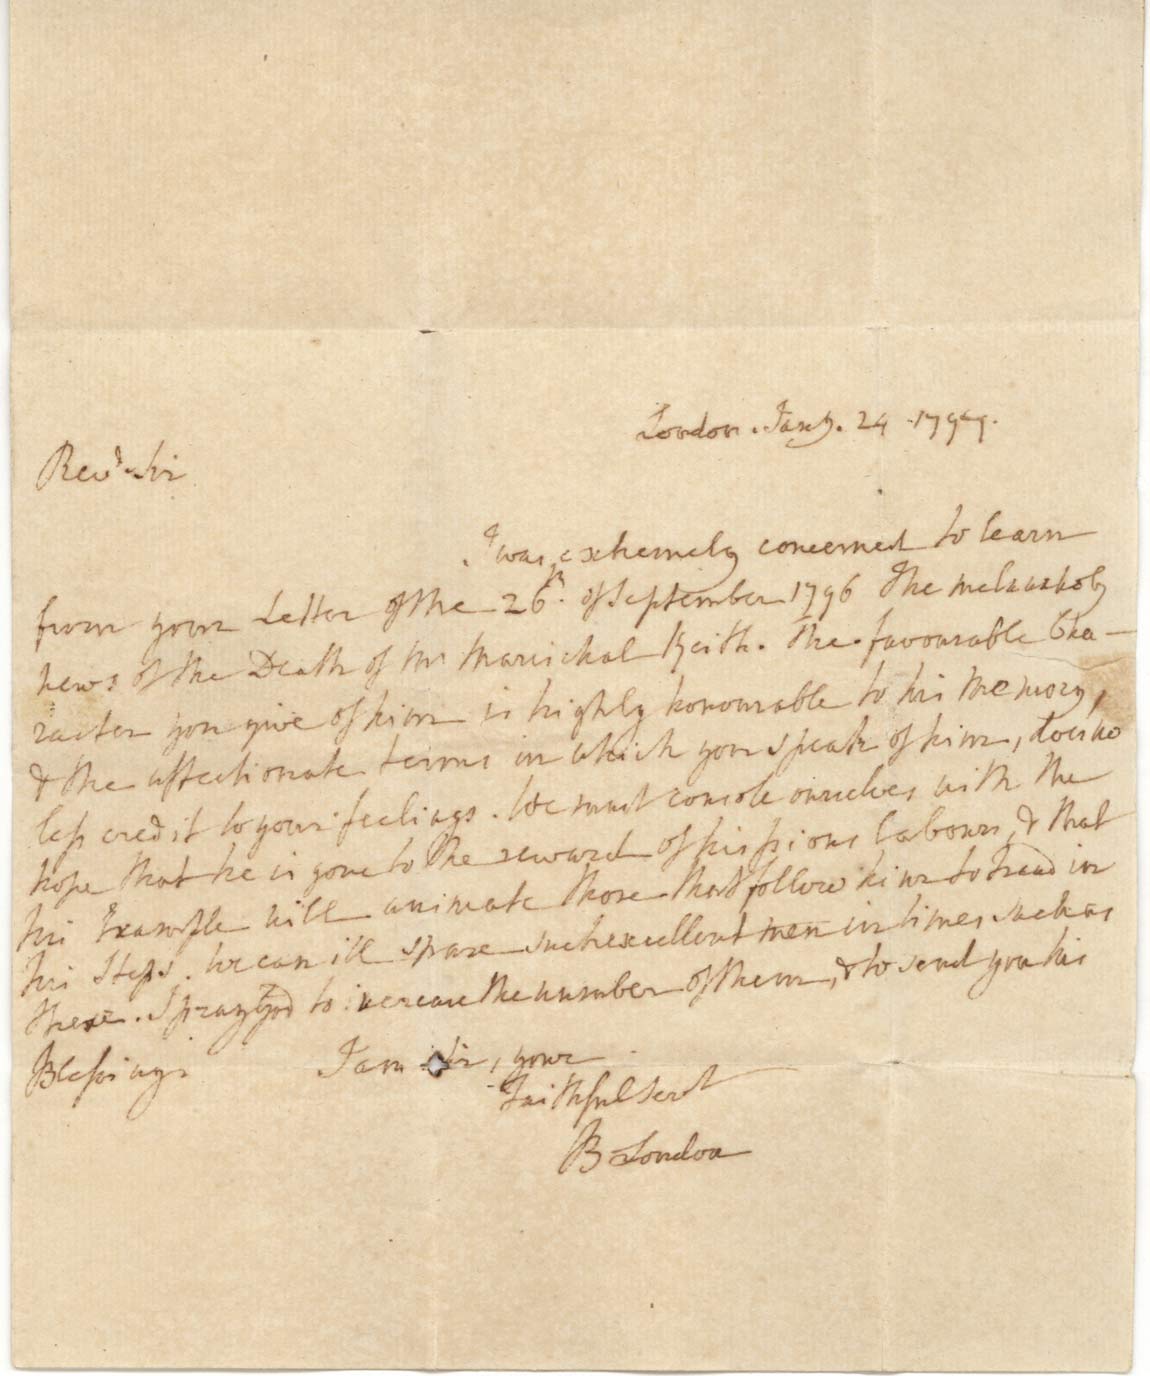 London. Jany. 24. 1797.
Revd. Sir
I was extremely concerned to learn
from your Letter of the 26th. of September 1796 the melancholy
news of the Death of Mr Marischal Keith. The favourable Cha-
racter you give of him is highly honourable to his Memory,
& the affectionate terms in which you speak of him, does no
less credit to your feelings. We must console ourselves with the
hope that he is gone to the reward of his pious labours, & that
his Example will animate those that follow him to tread in
his Steps. We can ill spare such excellent men in times such as
these. I pray God to increase the number of them, & to send you his
Blessings. I am Sir, your
Faithful Servt
B London